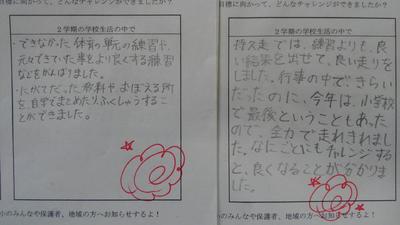 目標に向かって、どんなチャレンジができましたか?
2学期の学校生活の中で
・できなかった体育の単元の練習や、
元々できていた事をより良くする練習
などをがんばりました。
・にがてだった教科や、おぼえる所
を自学でまとめたり、ふくしゅうすること
ができました。
小のみんなや保護者、地域の方へお知らせするよ!
目標に向かって、どんなチャレンジができましたか?
2学期の学校生活の中で
持久走では、練習よりも、良
い結果を出せて、良い走りを
しました。行事の中で、きらい
だったのに、今年は、小学校
で最後ということもあった
ので、全力で走れきれまし
た。なにごとにもチャレンジする
と、良くなることが分かりまし
た。
小のみんなや保護者、地域の方へお知らせするよ!